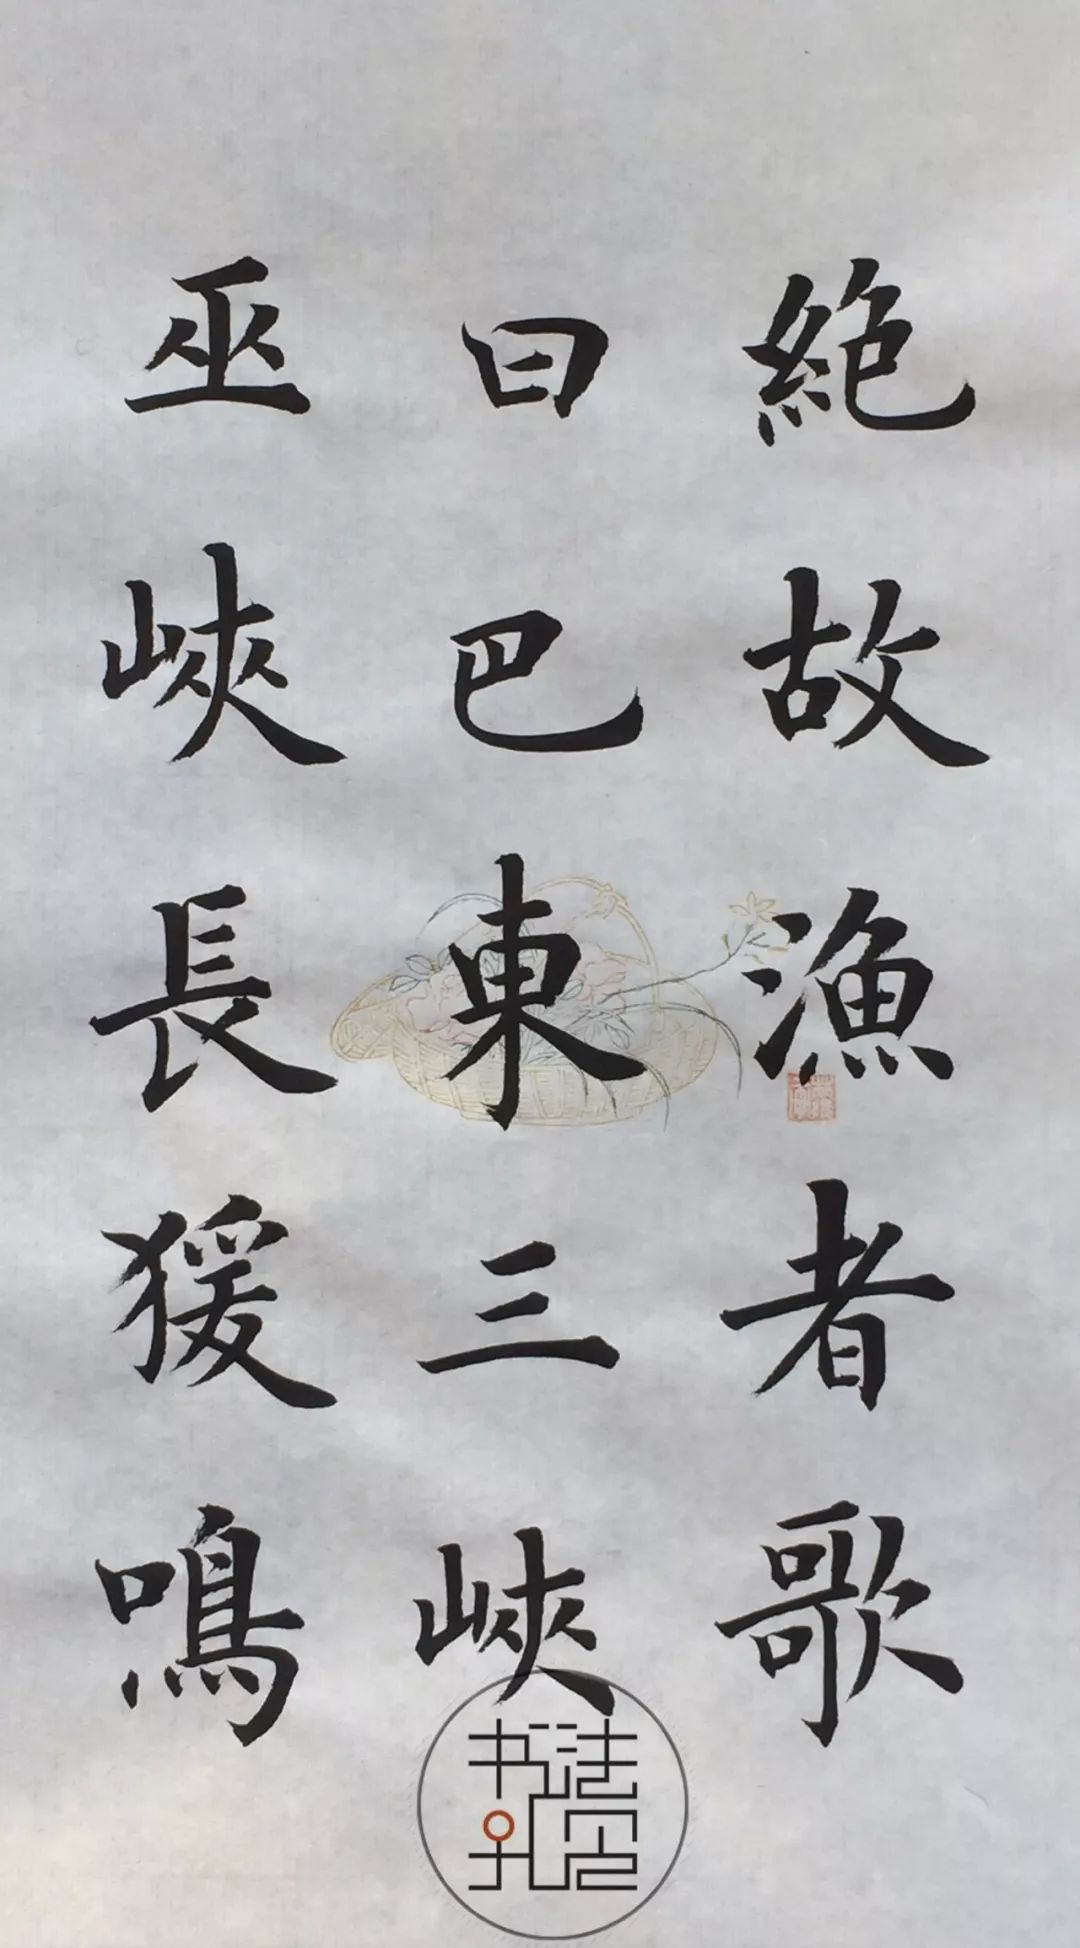 絶故漁者歌
曰巴東三峽
巫峽長猨鳴
书法